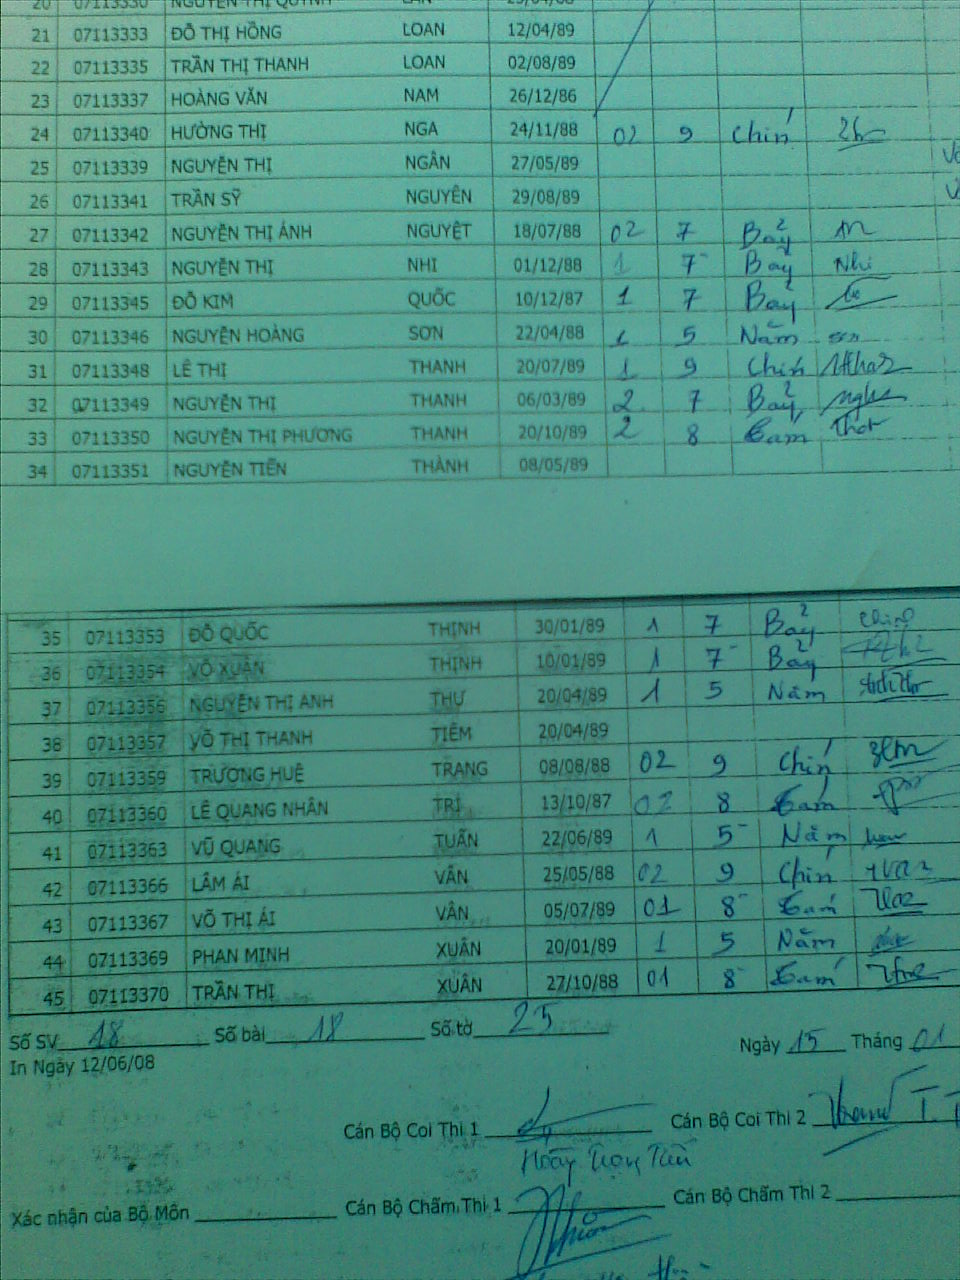 20 07113330 NGUYỄN THỊ QUỲNH LAN
21 07113333 ĐỖ THỊ HỒNG LOAN 12/04/89
22 07113335 TRẦN THỊ THANH LOAN 02/08/89
23 07113337 HOÀNG VĂN NAM 26/12/86
24 07113340 HƯỜNG THỊ NGA 24/11/88 02 9 Chín
25 07113339 NGUYỄN THỊ NGÂN 27/05/89
26 07113341 TRẦN SỸ NGUYÊN 29/08/89
27 07113342 NGUYỄN THỊ ÁNH NGUYỆT 18/07/88 02 7 Bảy
28 07113343 NGUYỄN THỊ NHI 01/12/88 1 7 Bảy Nhi
29 07113345 ĐỖ KIM QUỐC 10/12/87 1 7 Bảy
30 07113346 NGUYỄN HOÀNG SƠN 22/04/88 1 5 Năm sơn
31 07113348 LÊ THỊ THANH 20/07/89 1 9 Chín
32 07113349 NGUYỄN THỊ THANH 06/03/89 2 7 Bảy
33 07113350 NGUYỄN THỊ PHƯƠNG THANH 20/10/89 2 8 Tám
34 07113351 NGUYỄN TIẾN THÀNH 08/05/89
35 07113353 ĐỖ QUỐC THỊNH 30/01/89 1 7 Bảy
36 07113354 VÕ XUÂN THỊNH 10/01/89 1 7 Bảy
37 07113356 NGUYỄN THỊ ANH THƯ 20/04/89 1 5 Năm
38 07113357 VÕ THỊ THANH TIỀM 20/04/89
39 07113359 TRƯƠNG HUÊ TRANG 08/08/88 02 9 Chín
40 07113360 LÊ QUANG NHÂN TRÍ 13/10/87 02 8 Tám
41 07113363 VŨ QUANG TUẤN 22/06/89 1 5 Năm
42 07113366 LÂM ÁI VÂN 25/05/88 02 9 Chín
43 07113367 VÕ THỊ ÁI VÂN 05/07/89 01 8 Tám
44 07113369 PHAN MINH XUÂN 20/01/89 1 5 Năm
45 07113370 TRẦN THỊ XUÂN 27/10/88 01 8 Tám
Số SV 18 Số bài 18 Số tờ 25
Ngày 15 Tháng 01
In Ngày 12/06/08
Cán Bộ Coi Thi 1 Cán Bộ Coi Thi 2
Xác nhận của Bộ Môn Cán Bộ Chấm Thi 1 Cán Bộ Chấm Thi 2